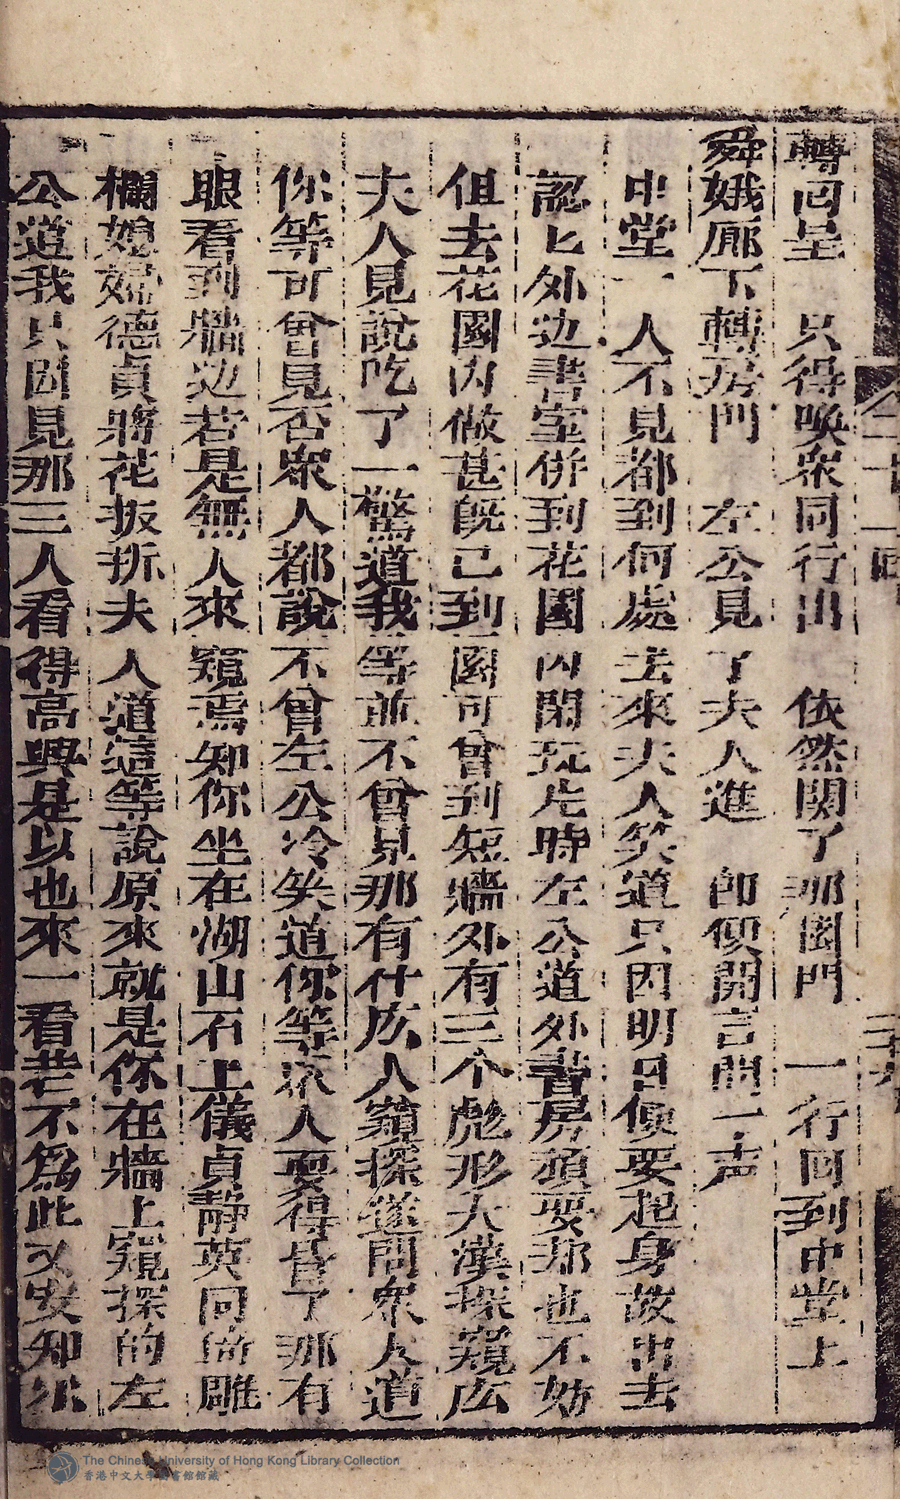 轉囘呈　只得喚衆同行出　依然関了那園門　一行囘到中堂上
舜娥廊下轉房門　左公見了夫人進　即便開言問一声
中堂一人不見都到何處去來夫人笑道只因明日便要起身故出去
認匕外边書室併到花園內閑玩片時左公道外書房頑耍那也不妨
但去花園內做甚既已到園可曾到短牆外有三个彪形大漢探窺広
夫人見說吃了一驚道我等並不曾見那有什広人窺探遂問衆人道
你等可曾見否衆人都說不曾左公冷笑道你等衆人耍得昏了那有
眼看到牆边若是無人來窺焉知你坐在湖山石上儀貞靜英同倚雕
欄媳婦德貞將花扳折夫人道這等說原來就是你在牆上窺探的左
公道我只因見那三人看得高興是以也來一看若不為此又安知尔
二十九
The Chinese University of Hong Kong Library Collection
香港中文大學圖書館館藏